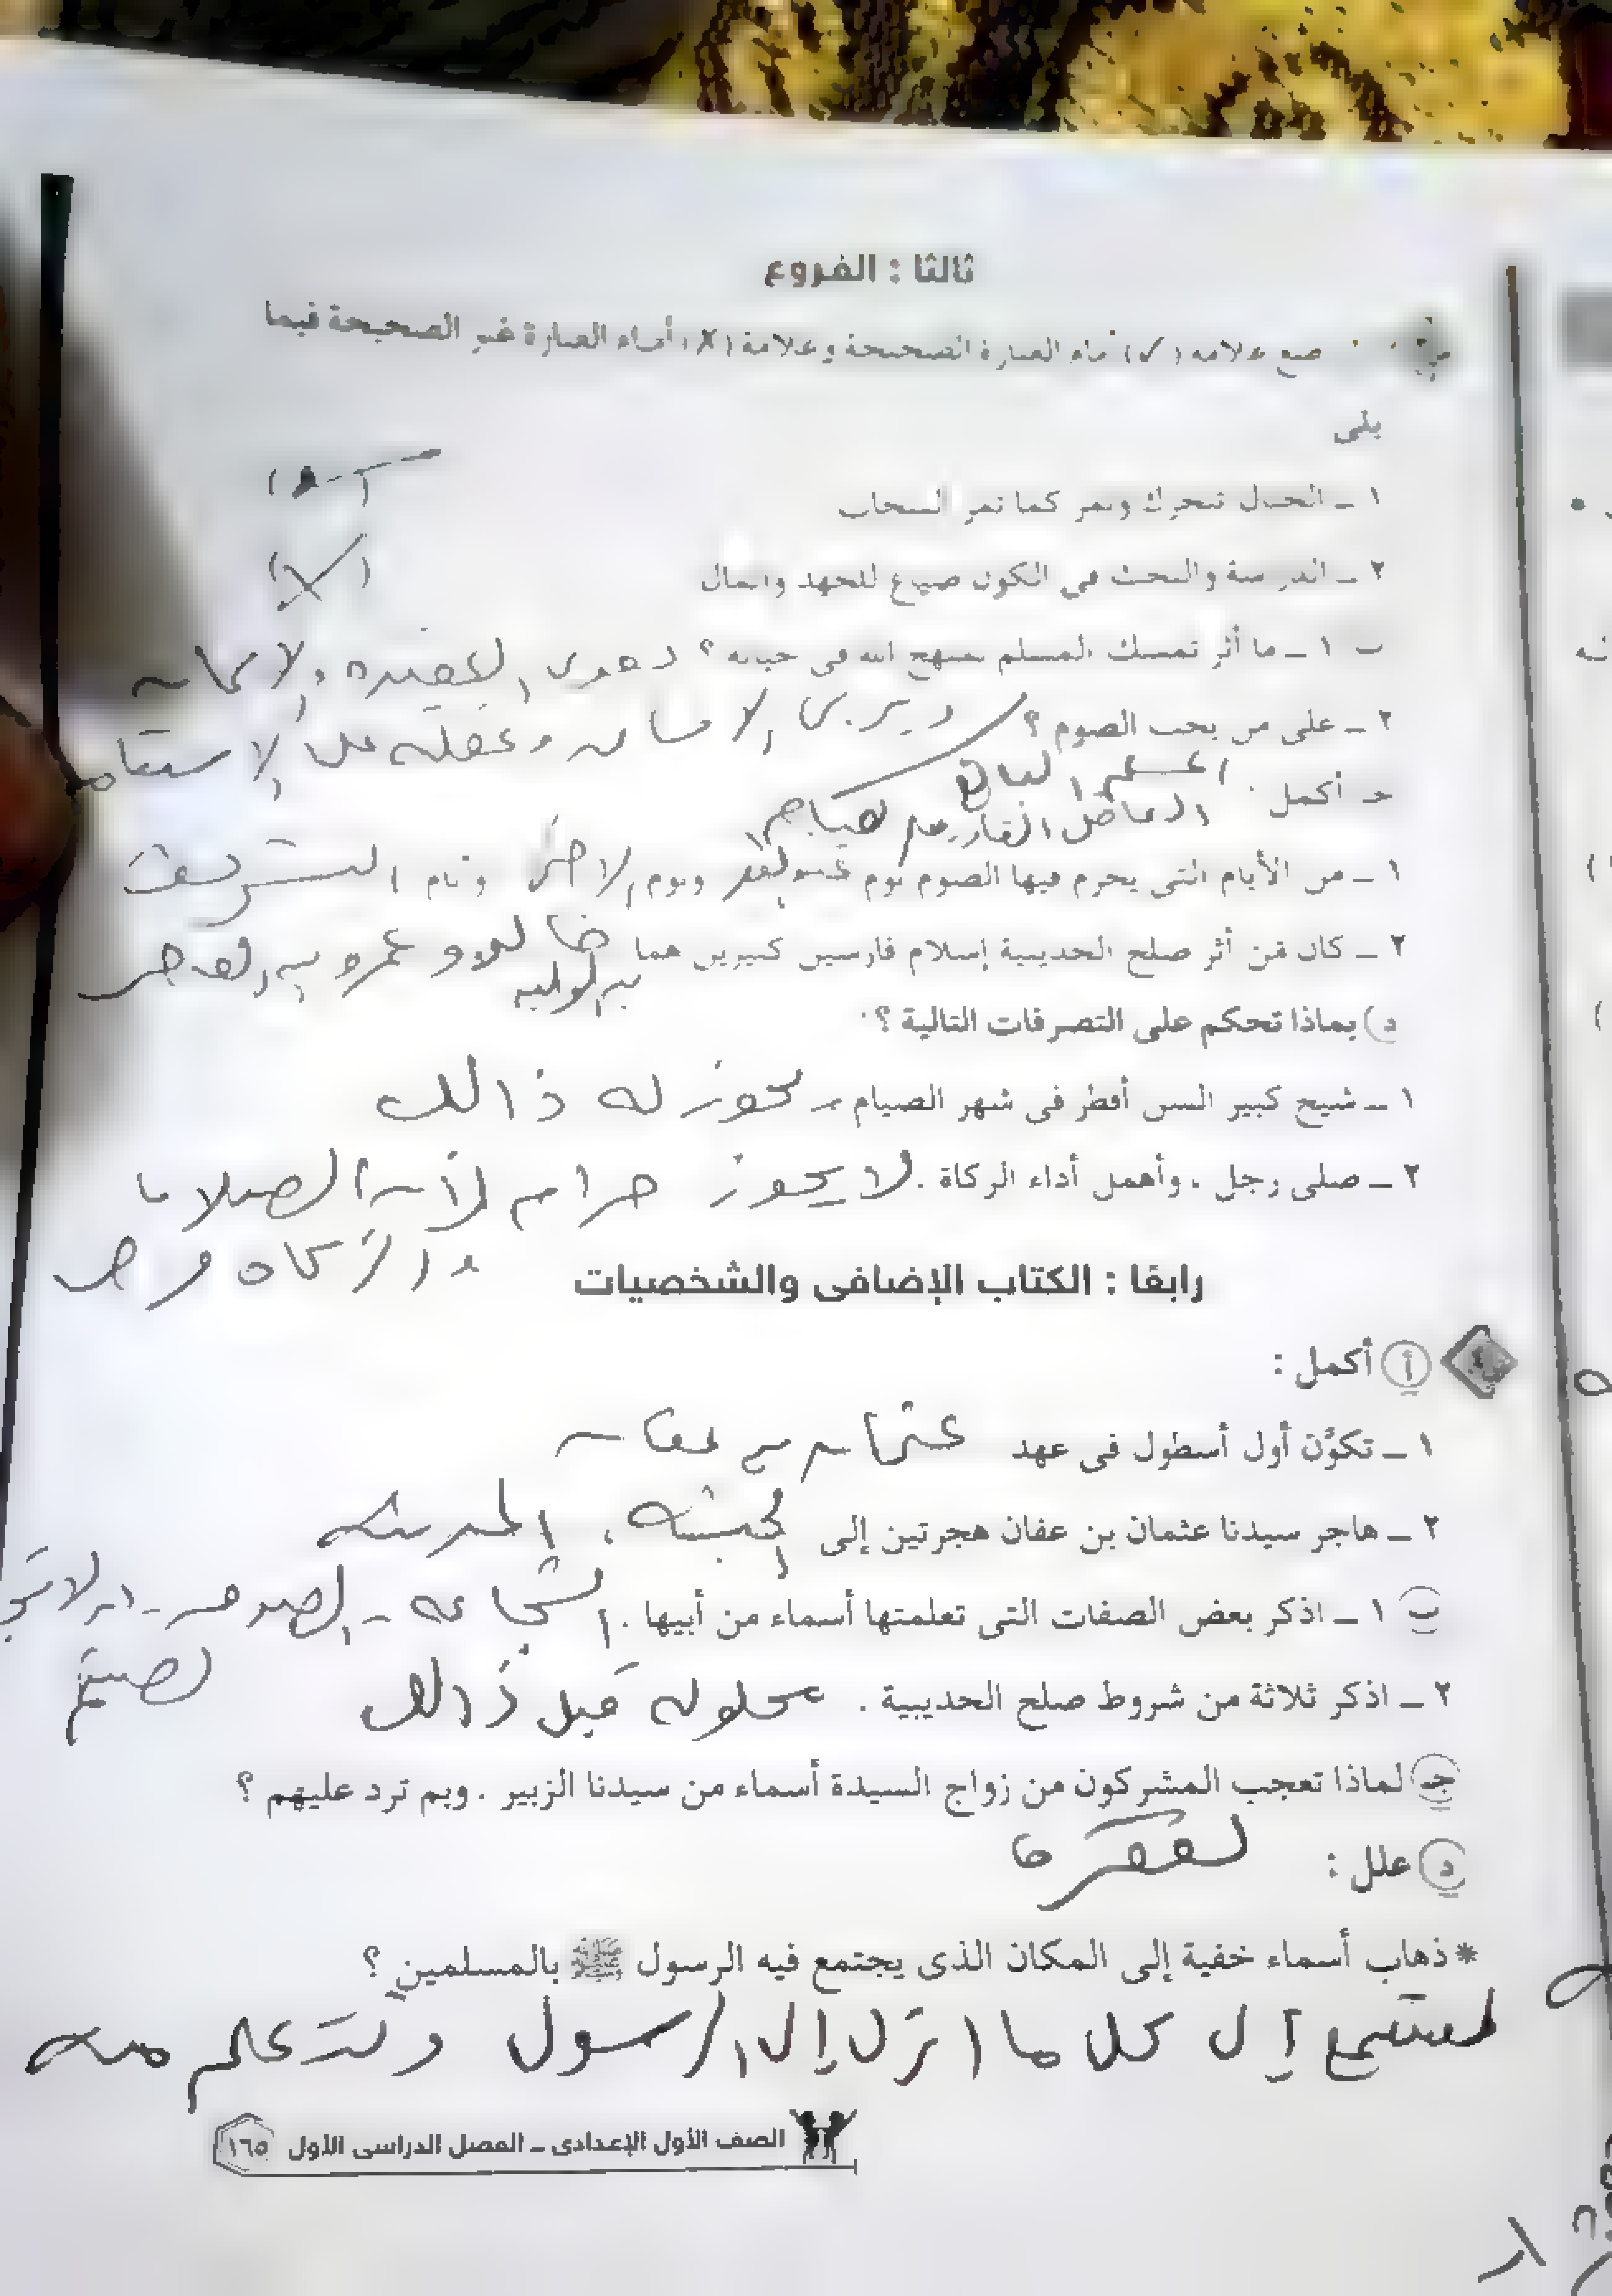 ثالثا : الفروع
ضع علامة (✓) أمام العبارة الصحيحة وعلامة (✗) أمام العبارة غير الصحيحة فيما
يلى
١ ـ الجبال تتحرك وتمر كما تمر السحاب
٢ ـ الدراسة والبحث فى الكون ضياع للجهد والمال (✗)
ب ١ ـ ما أثر تمسك المسلم بمنهج الله فى حياته ؟ العقيده والإيمان
ويربى الإنسان وعقله على الإستقامه
٢ ـ على من يجب الصوم ؟
المسلم البالغ
جـ أكمل :
العاقل القادر على الصيام
١ ـ من الأيام التى يحرم فيها الصوم يوم ويوم وأيام التشريق
٢ ـ كان من أثر صلح الحديبية إسلام فارسين كبيرين هما خالد وعمرو بن العاص
بن الوليد
د) بماذا تحكم على التصرفات التالية ؟
١ ـ شيخ كبير السن أفطر فى شهر الصيام يجوز له ذالك
٢ ـ صلى رجل ، وأهمل أداء الزكاة . لا يجوز حرام لأن الصلاه
والزكاه فرض
رابعًا : الكتاب الإضافى والشخصيات
أ أكمل :
١ ـ تكوَّن أول أسطول فى عهد عثمان بن عفان
٢ ـ هاجر سيدنا عثمان بن عفان هجرتين إلى الحبشه ، المدينه
ب ١ ـ اذكر بعض الصفات التى تعلمتها أسماء من أبيها . الشجاعه ـ الصدق ـ
٢ ـ اذكر ثلاثة من شروط صلح الحديبية . محلوله قبل ذالك
جـ لماذا تعجب المشركون من زواج السيدة أسماء من سيدنا الزبير . وبم ترد عليهم ؟
لفقره
د علل :
* ذهاب أسماء خفية إلى المكان الذى يجتمع فيه الرسول ﷺ بالمسلمين ؟
لتستمع إلى كل ما انزل إلى الرسول وتتعلم منه
الصف الأول الإعدادى ـ الفصل الدراسى الأول ١٦٥